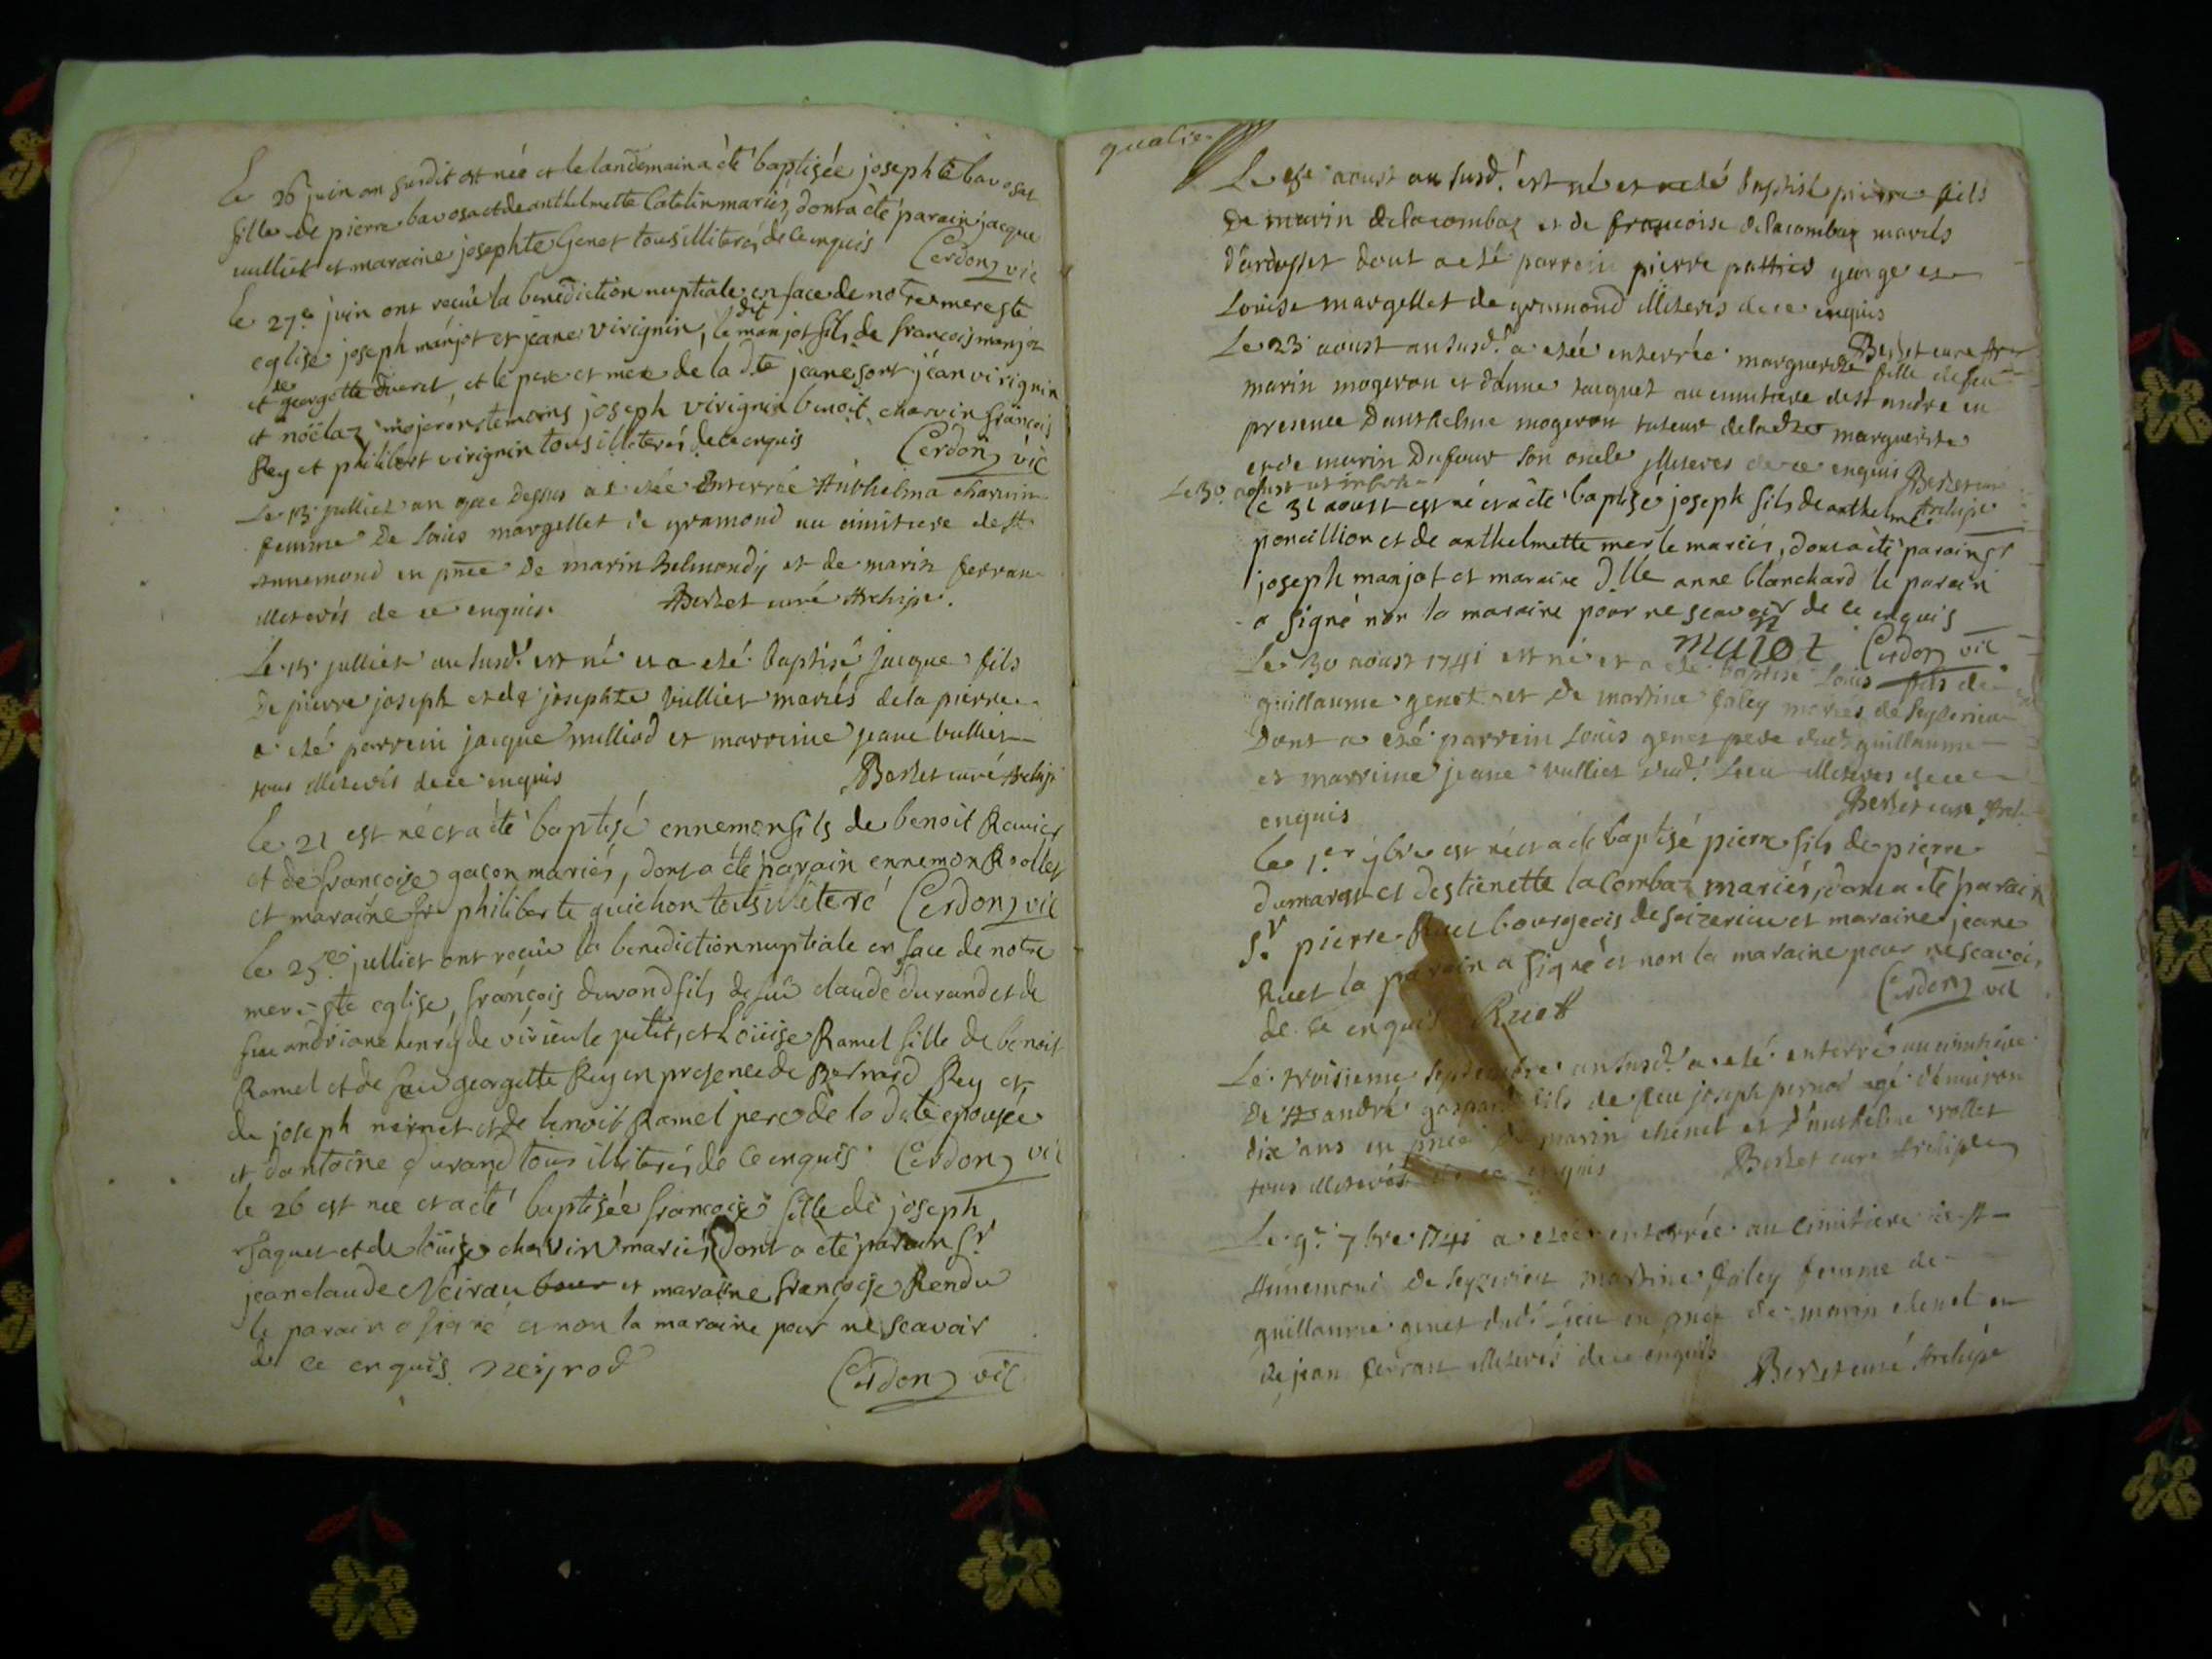 Le 26 juin an susdit est née et le landemain a été baptisée josephte bavosat
fille de pierre bavosat et de anthelmette Catelin mariés, dont a été parain jacque
vulliet et maraine josephte Genet tous illiterés de ce enquis Cerdon vic
le 27e juin ont reçue la benediction nuptiale en face de notre mere ste
eglise joseph manjot et jeane virignin, le dit manjot fils de françois manjot
et de georgette, et le pere et mere de la dte jeane sont jean virignin
et noëlaz mojeron temoins joseph virignin benoit charvin françois
Rey et philibert virignin tous illiterés de ce enquis Cerdon vic
Le 13 julliet an que dessus a esté enterrée Anthelma charvin
femme de Louis margellet de gramond au cimitiere de st
Annemond en pnce de marin Belmondy et de marin ferran
illiterés de ce enquis. Berlet curé Archipe.
Le 15 julliet an susd. est né et a eté baptisé Jacque fils
De pierre joseph et de josephte vulliet mariés de la pierre
a eté parrein jacque milliod et marreine jeane vulliet
tous illiterés de ce enquis Berlet curé Archip
Le 21 est né et a été baptisé ennemon fils de benoit Ravier
et de françoise gaçon mariés, dont a été parain ennemon Rollet
et maraine philiberte guichon tous illiteré Cerdon vic
Le 25e julliet ont reçue la benediction nuptiale en face de notre
mere ste eglise, françois durand fils de feu claude durand et de
feue andriane henry de virieu le petit, et Loüise Ramel fille de benoit
Ramel et de feue georgette Rey en presence de Bernard Rey et
de joseph nernet et de benoit Ramel pere de la dite epousée
et dantoine durand tous illiterés de ce enquis Cerdon vic
le 26 est née et a été baptisée françoise fille de joseph
Jaquet et de loüise charvin mariés, dont a été parain Sr
jean claude Neirau et maraine françoise Rendu
le parain a signé et non la maraine pour ne scavoir
de ce enquis neyrod Cerdon vic
qualie
Le aoust an susd. est né et a eté baptisé pierre fils
De marin delacombaz et de francoise delacombaz mariés
d'ardosset dont a eté parrein pierre george et
Louise margellet de gramond illiterés de ce enquis
Berlet curé Ar
Le 23 aoust an susd. a etée enterrée marguerite fille de feu
marin mogeron et d'anne jacquet au cimitiere de st andré en
presence d'anthelme mogeron tuteur de la dte marguerite
et de marin Dufour son oncle illiterés de ce enquis Berlet curé
Archipe
Le 30 aoust
le 31 aoust est né et a été baptisé joseph fils de anthelme
poncillion et de anthelmette merle mariés, dont a été parain Sr
joseph manjot et maraine Dlle anne blanchard le parain
a signé non la maraine pour ne scavoir de ce enquis
majot Cerdon vic
Le 30 aoust 1741 est né et a eté baptisé Louis fils de
guillaume genet et de martine faley mariés de Seyserieu
Dont a eté parrein Louis genet pere dud. guillaume
et marreine jeane vulliet dud. Lieu illiterés de ce
enquis Berlet curé Arch
le 1er 7bre est né et a été baptisé pierre fils de pierre
dumarest et destienette lacombaz mariés, dont a été parain
Sr pierre Ruet bourgeois de seizerieu et maraine jeane
Ruet la parain a signé et non la maraine pour ne scavoir
de ce enquis Ruet Cerdon vic
Le troisieme septembre an susd. a eté enterré au cimitiere
De st andré gaspard fils de feu joseph pernod agé d'environ
dix ans en pnce de marin chenet et d'anthelme rollet
tous illiterés de ce enquis Berlet curé Archipe
Le 9e 7bre 1741 a etée enterrée au cimitiere de st
Annemond de Seyzerieu martine faley femme de
guillaume genet dud. Lieu en pnce de marin chenet et
de jean ferrant illiterés de ce enquis Berlet curé Archipe